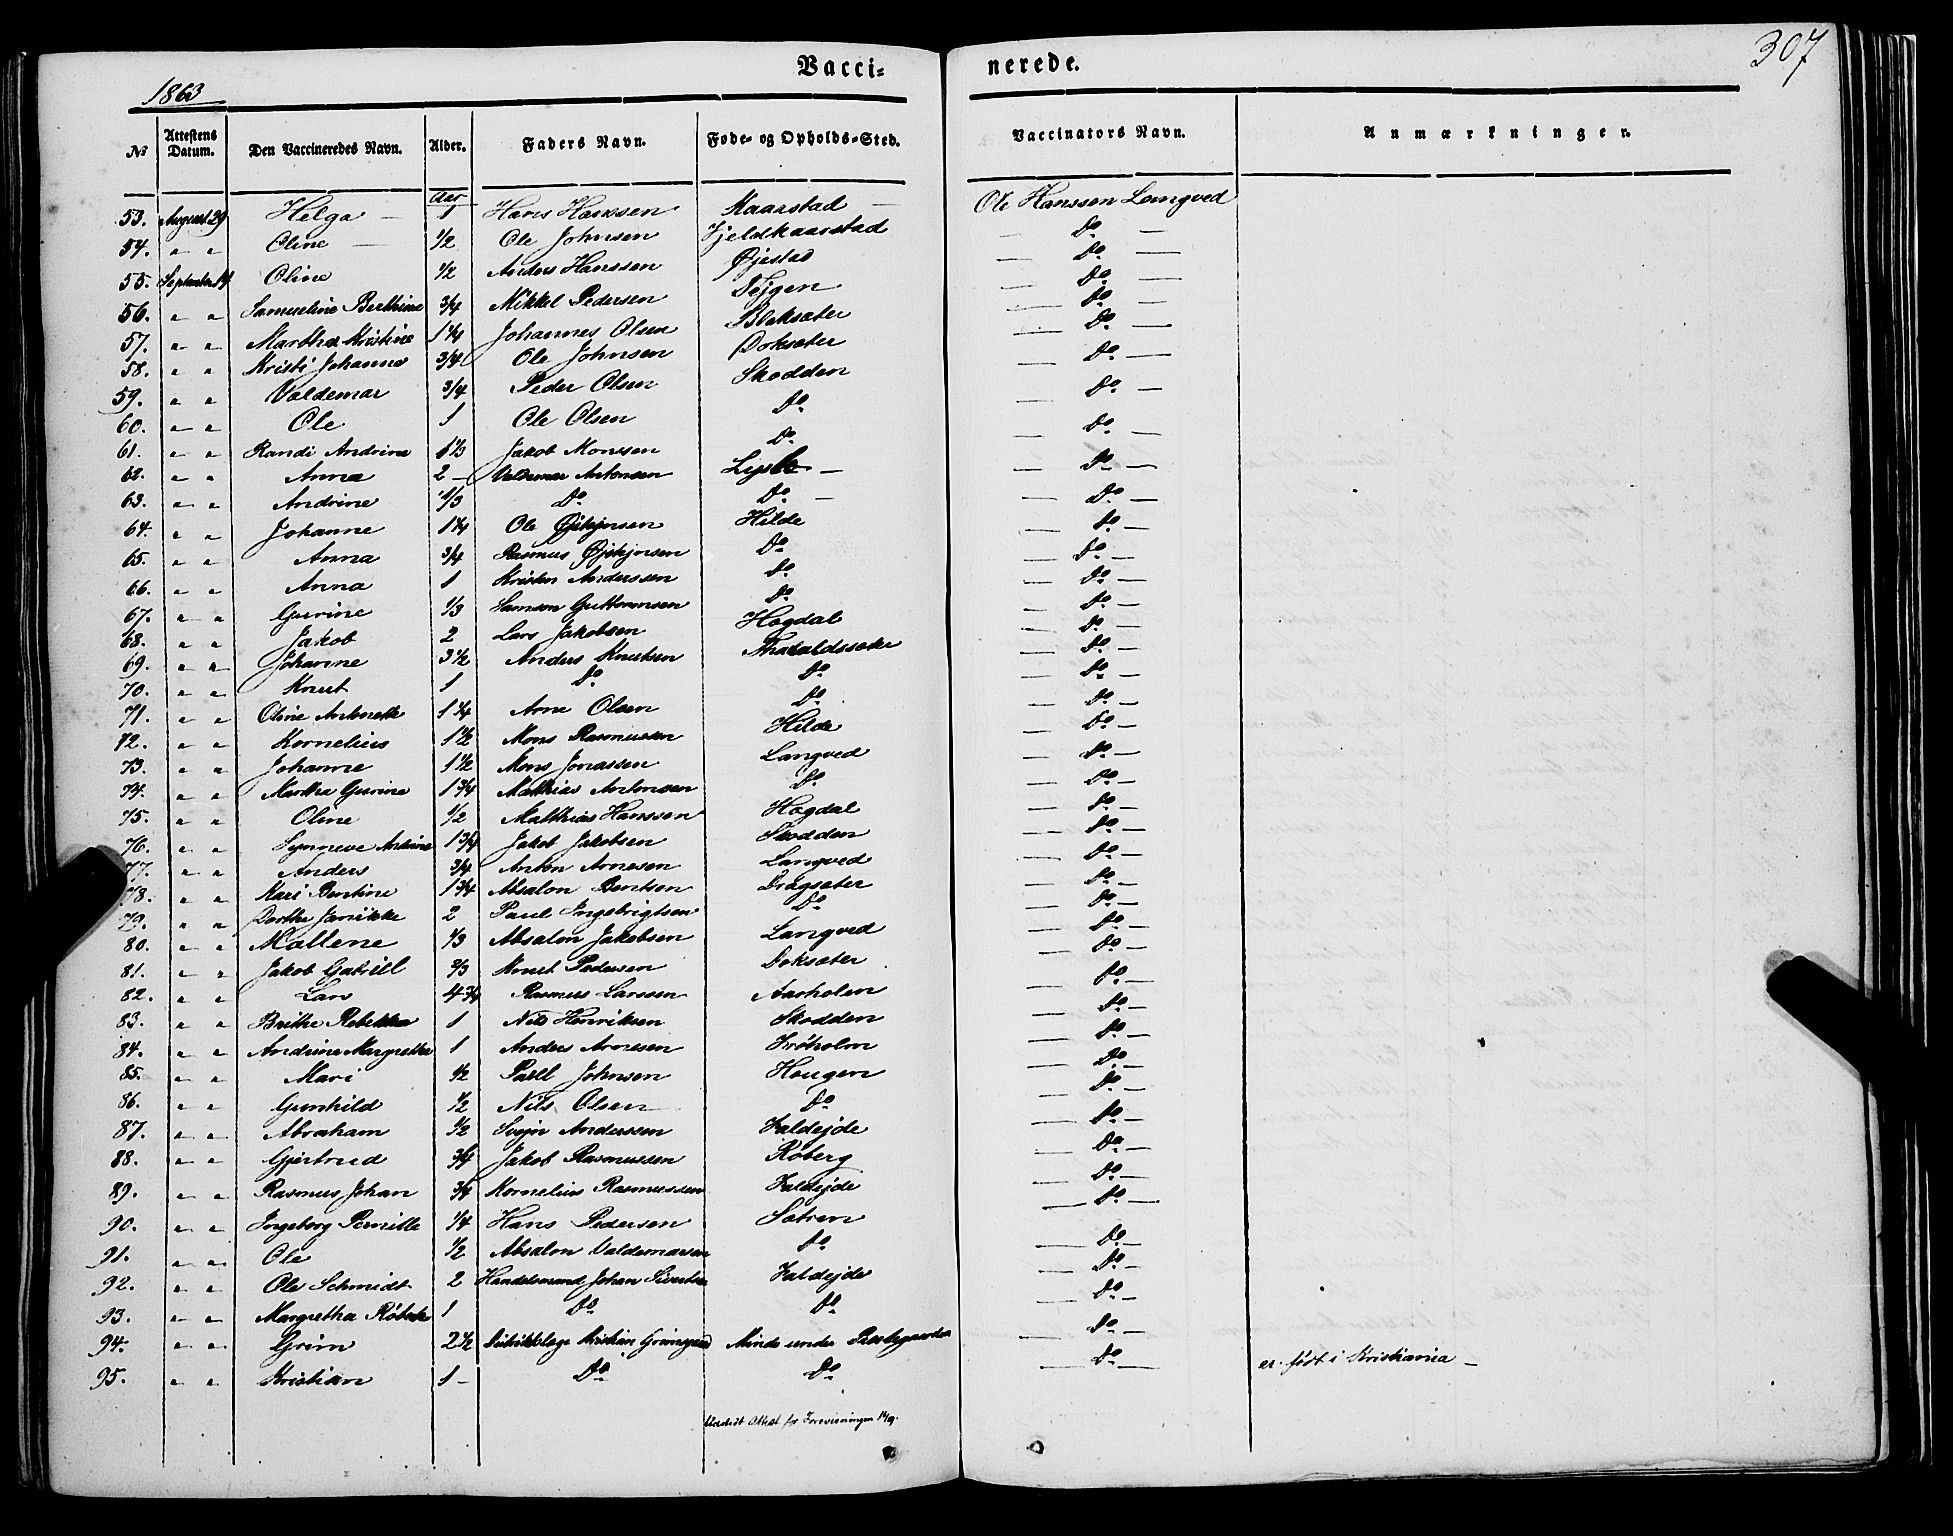 307
Vacci- nerede.
1863
No Attestens Datum. Den Vaccineredes Navn. Alder. Faders Navn. Føde- og Opholds-Sted. Vaccinators Navn. Anmærkninger.
Aar
53. August 29 Helga — 1 Hans Hanssen Kaarstad — Ole Hanssen Langved
54. " " Oline — 1/2 Ole Johnsen Fjeldkaarstad — Do —
55. September 14 Oline 1/2 Anders Hanssen Øjestad — Do —
56. " " Samueline Berthine 3/4 Mikkel Pedersen — Do —
57. " " Martha Kristine 1 1/4 Johannes Olsen — Do —
58. " " Kristi Johanna 3/4 Ole Johnsen Doksæter — Do —
59. " " Valdemar 3/4 Peder Olsen Skodden — Do —
60. " " Ole 1 Ole Olsen Do — Do —
61. " " Randi Andrine 1 1/3 Jakob Monssen Do — Do —
62. " " Anna 2 — Valdemar Antonsen — Do —
63. " " Andrine 1/3 Do Do — — Do —
64. " " Johanne 1 1/4 Ole Hilde — Do —
65. " " Anna 3/4 Rasmus Do — Do —
66. " " Anna 1 Kristen Anderssen Do — Do —
67. " " Gurine 1/3 Samson Guttormsen Do — Do —
68. " " Jakob 2 Lars Jakobsen Hogdal — Do —
69. " " Johanne 3 1/2 Anders Knutsen — Do —
70. " " Knut 1 Do Do — Do —
71. " " Oline Antonette 1 1/4 Arne Olsen Do — Do —
72. " " Kornelius 1 1/2 Mons Rasmussen Hilde — Do —
73. " " Johanne 1 1/2 Mons Jonassen Langved — Do —
74. " " Martha Gurine 1 3/4 Matthias Antonsen Do — Do —
75. " " Oline 1/2 Matthias Hanssen Hogdal — Do —
76. " " Synneve Andrine 1 3/4 Jakob Jakobsen Skodden — Do —
77. " " Anders 3/4 Anton Arnesen Langved — Do —
78. " " Kari Bentine 1 3/4 Absalon Bentsen Dragsæter — Do —
79. " " Dorthe Janikke 2 Paul Ingebrigtsen Do — Do —
80. " " Mallene 1/3 Absalon Jakobsen Langved — Do —
81. " " Jakob Gabriell 2/3 Knut Pedersen Doksæter — Do —
82. " " Lars 4 3/4 Rasmus Larssen Aarholen — Do —
83. " " Brithe Rebekka 1 Nils Henriksen Skodden — Do —
84. " " Andrine Margrethe 1 Anders Arnesen Frøholm — Do —
85. " " Mari 1/2 Paul Johnsen Hougen — Do —
86. " " Gunhild 1/2 Nils Olsen Do — Do —
87. " " Abraham 1/2 Svejn Anderssen Faldejde — Do —
88. " " Gjertrud 3/4 Jakob Rasmussen Røberg — Do —
89. " " Rasmus Johan 3/4 Kornelius Rasmussen Faldejde — Do —
90. " " Ingeborg Pernille 1/4 Hans Pedersen Sætren — Do —
91. " " Ole 1/2 Absalon Valdemarsen Do — Do —
92. " " Ole Schmidt 2 Handelsmand Johan Sivertsen Faldejde — Do —
93. " " Margretha 1 Do Do — Do —
94. " " Grim 2 1/2 Distriktslæge Kristian Minde under Præstegaarden — Do —
95. " " Kristian 1 — Do Do — Do — er født i Kristiania —
Attest for